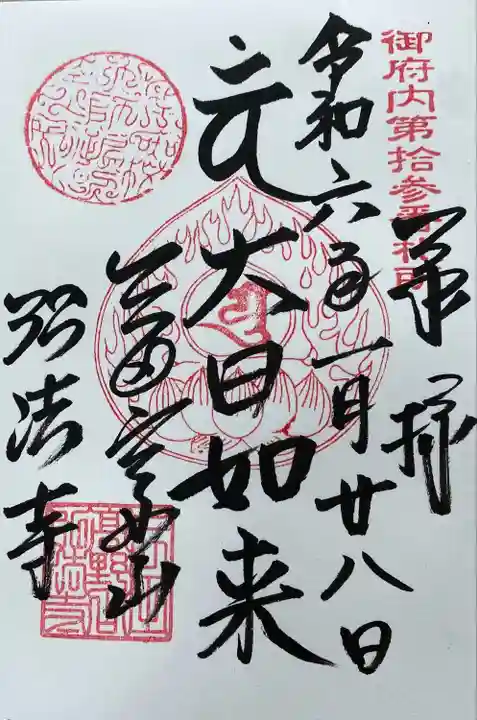 御府内第拾参番札所
奉拝
令和六年一月廿八日
大日如来
三田高野山
弘法寺